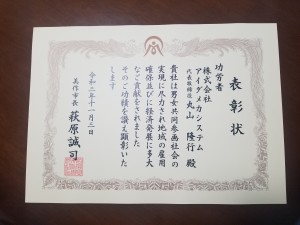 表彰状
功労者
株式会社
アイダメカシステム
代表取締役 丸山 隆行 殿
貴社は男女共同参画社会の
実現に尽力され地域の雇用
確保並びに経済発展に多大
なご貢献をされました
そのご功績を讃え顕彰いた
します
令和二年十一月三日
美作市長 萩原誠司